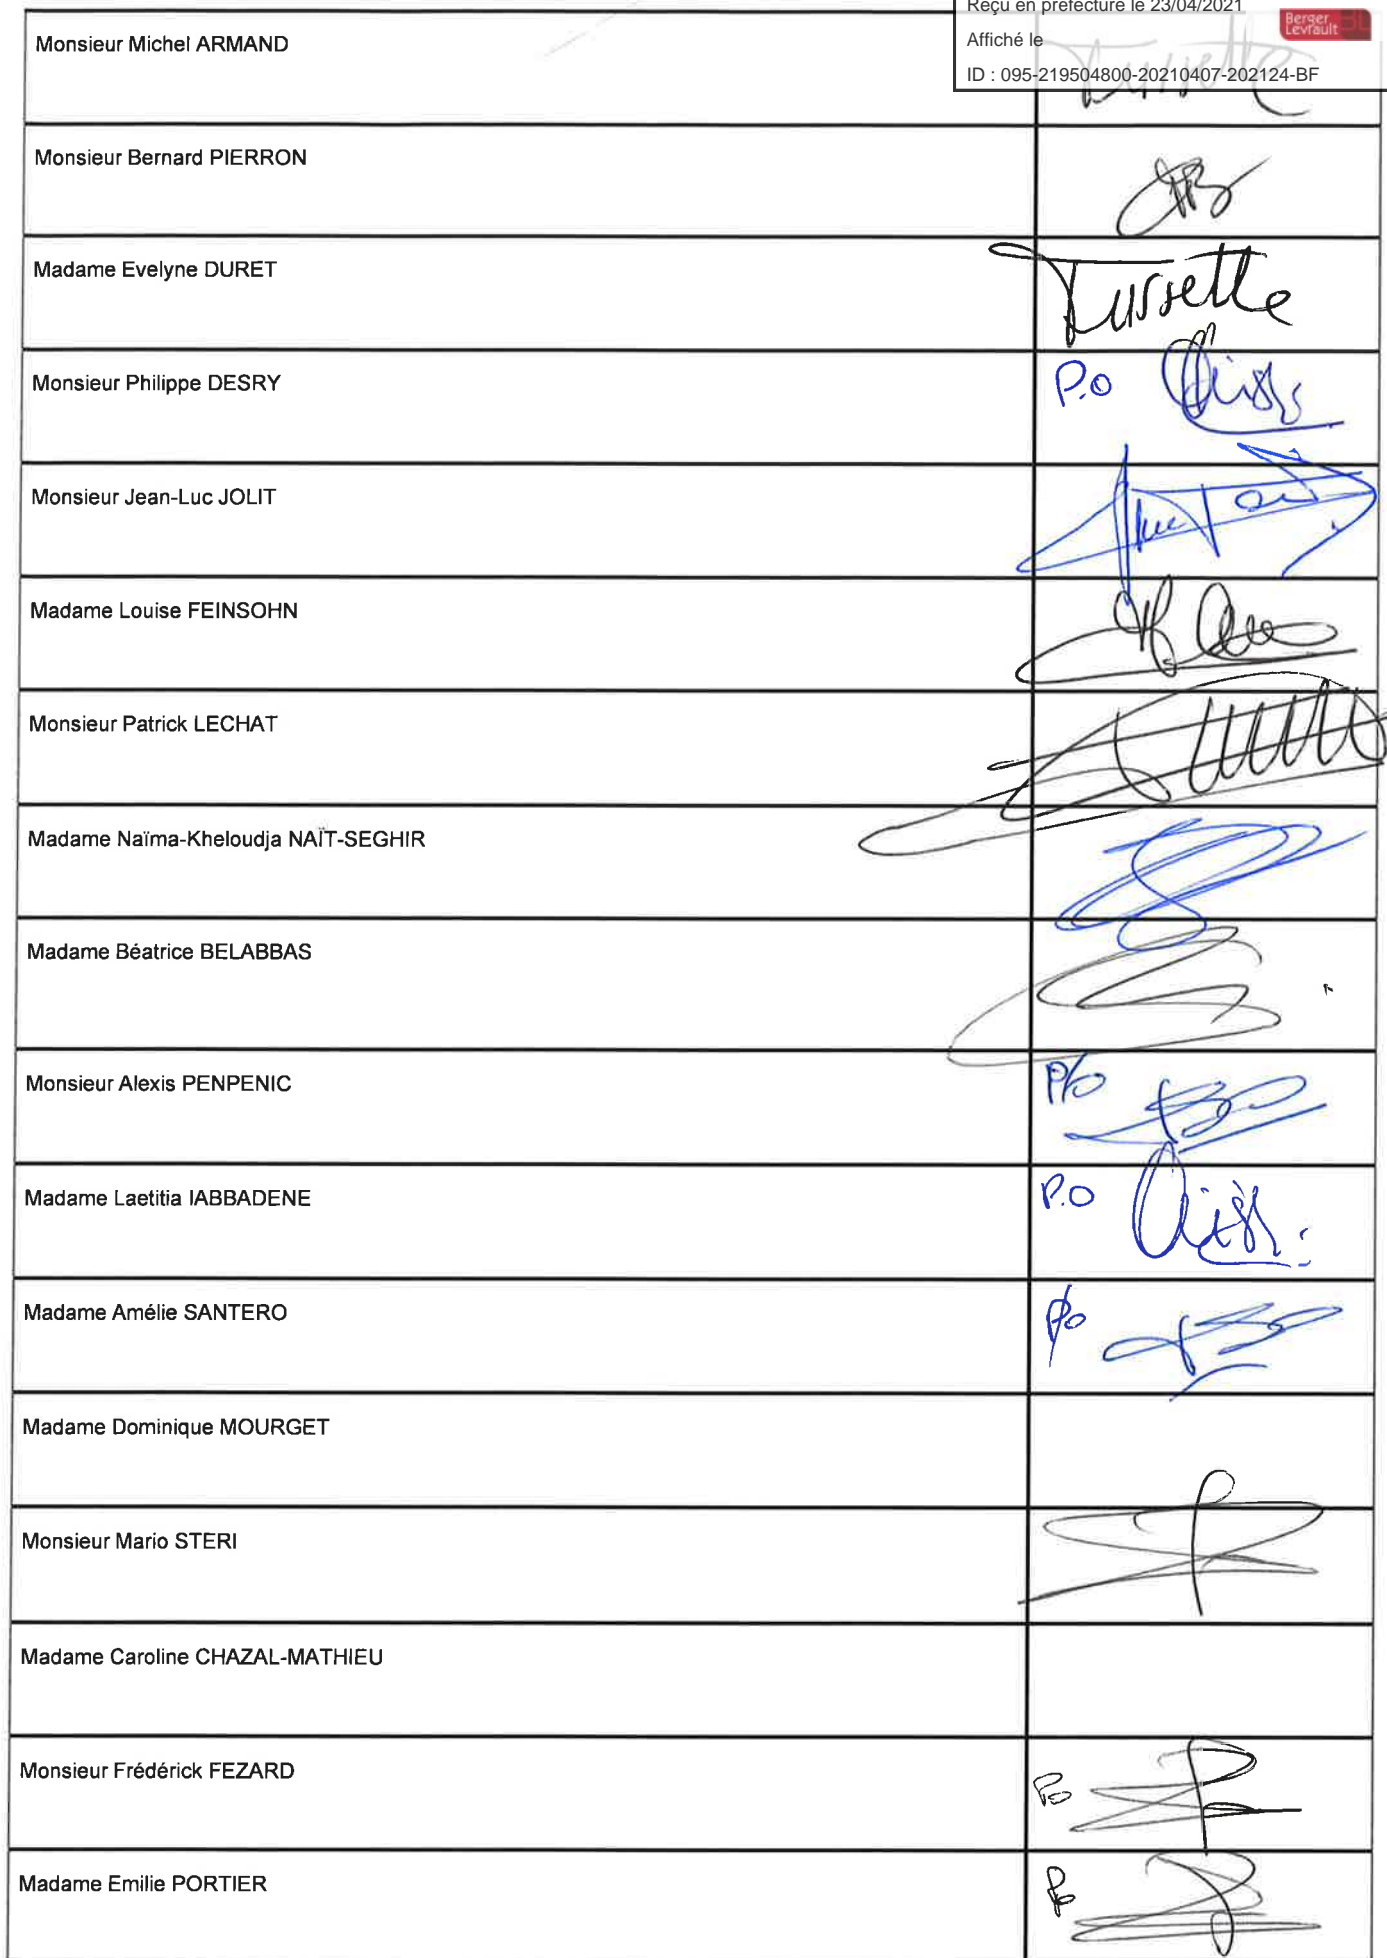 Reçu en préfecture le 23/04/2021
Berger
Levrault
Affiché le
ID : 095-219504800-20210407-202124-BF
Monsieur Michel ARMAND
Tussette
Monsieur Bernard PIERRON
Madame Evelyne DURET
Tussette
Monsieur Philippe DESRY
P.O
Monsieur Jean-Luc JOLIT
Madame Louise FEINSOHN
Monsieur Patrick LECHAT
Madame Naïma-Kheloudja NAÏT-SEGHIR
Madame Béatrice BELABBAS
Monsieur Alexis PENPENIC
P/o
Madame Laetitia IABBADENE
P.O
Madame Amélie SANTERO
P/o
Madame Dominique MOURGET
Monsieur Mario STERI
Madame Caroline CHAZAL-MATHIEU
Monsieur Frédérick FEZARD
Po
Madame Emilie PORTIER
Po